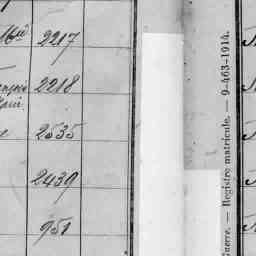 2217
2218
2535
2439
951
Guerre. — Registre matricule. — 9-463-1914.